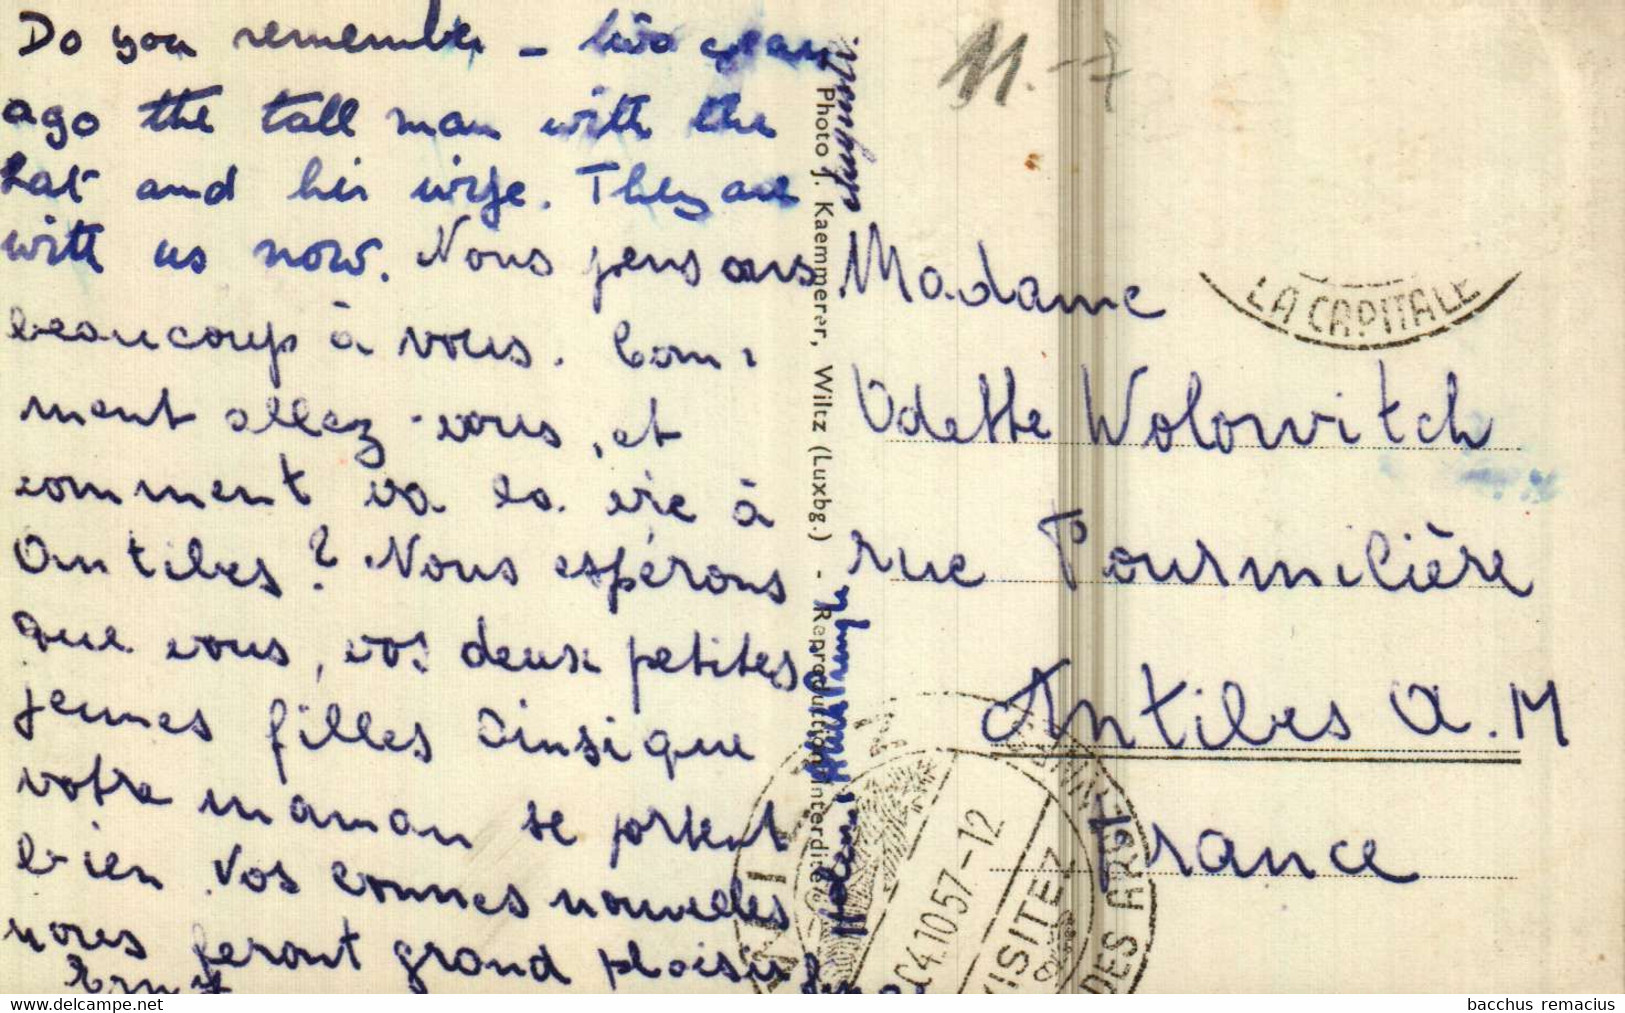 Do you remember - two years
ago the tall man with the
hat and his wife. They are
with us now. Nous pensons
beaucoup à vous. Com-
ment allez-vous, et
comment va la vie à
Antibes? Nous espérons
que vous, vos deux petites
jeunes filles ainsi que
votre maman se portent
bien. Vos bonnes nouvelles
nous feront grand plaisir
Photo J. Kaemmerer, Wiltz (Luxbg.) - Reproduction interdite
11.-7
Madame
Odette Wolowitch
rue Pourmilière
Antibes A.M
France
LA CAPITALE
4.10.57-12
VISITEZ
DES ARD
www.delcampe.net
bacchus remacius